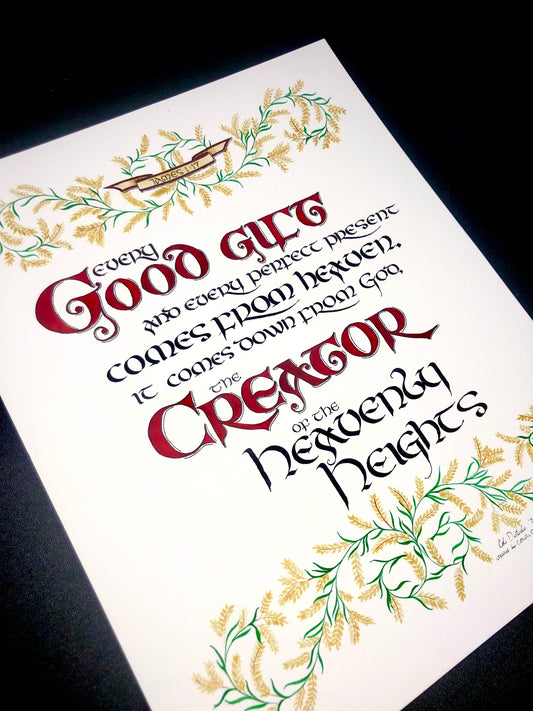 JAMES 1:17
EVERY
GOOD GIFT
AND EVERY PERFECT PRESENT
COMES FROM HEAVEN.
IT COMES DOWN FROM GOD,
THE
CREATOR
OF THE
HEAVENLY
HEIGHTS